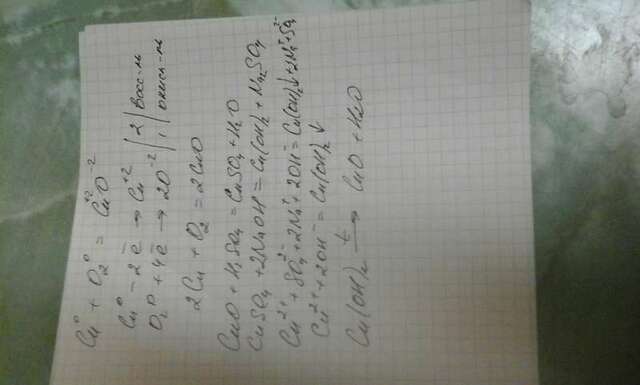 Cu⁰ + O₂⁰ = Cu⁺²O⁻²
Cu⁰ - 2ē → Cu⁺² | 2 | восс-ль
O₂⁰ + 4ē → 2O⁻² | 1 | окисл-ль
2Cu + O₂ = 2CuO
CuO + H₂SO₄ = CuSO₄ + H₂O
CuSO₄ + 2NaOH = Cu(OH)₂ + Na₂SO₄
Cu²⁺ + SO₄²⁻ + 2Na⁺ + 2OH⁻ = Cu(OH)₂↓ + 2Na⁺ + SO₄²⁻
Cu²⁺ + 2OH⁻ = Cu(OH)₂↓
Cu(OH)₂ —t→ CuO + H₂O